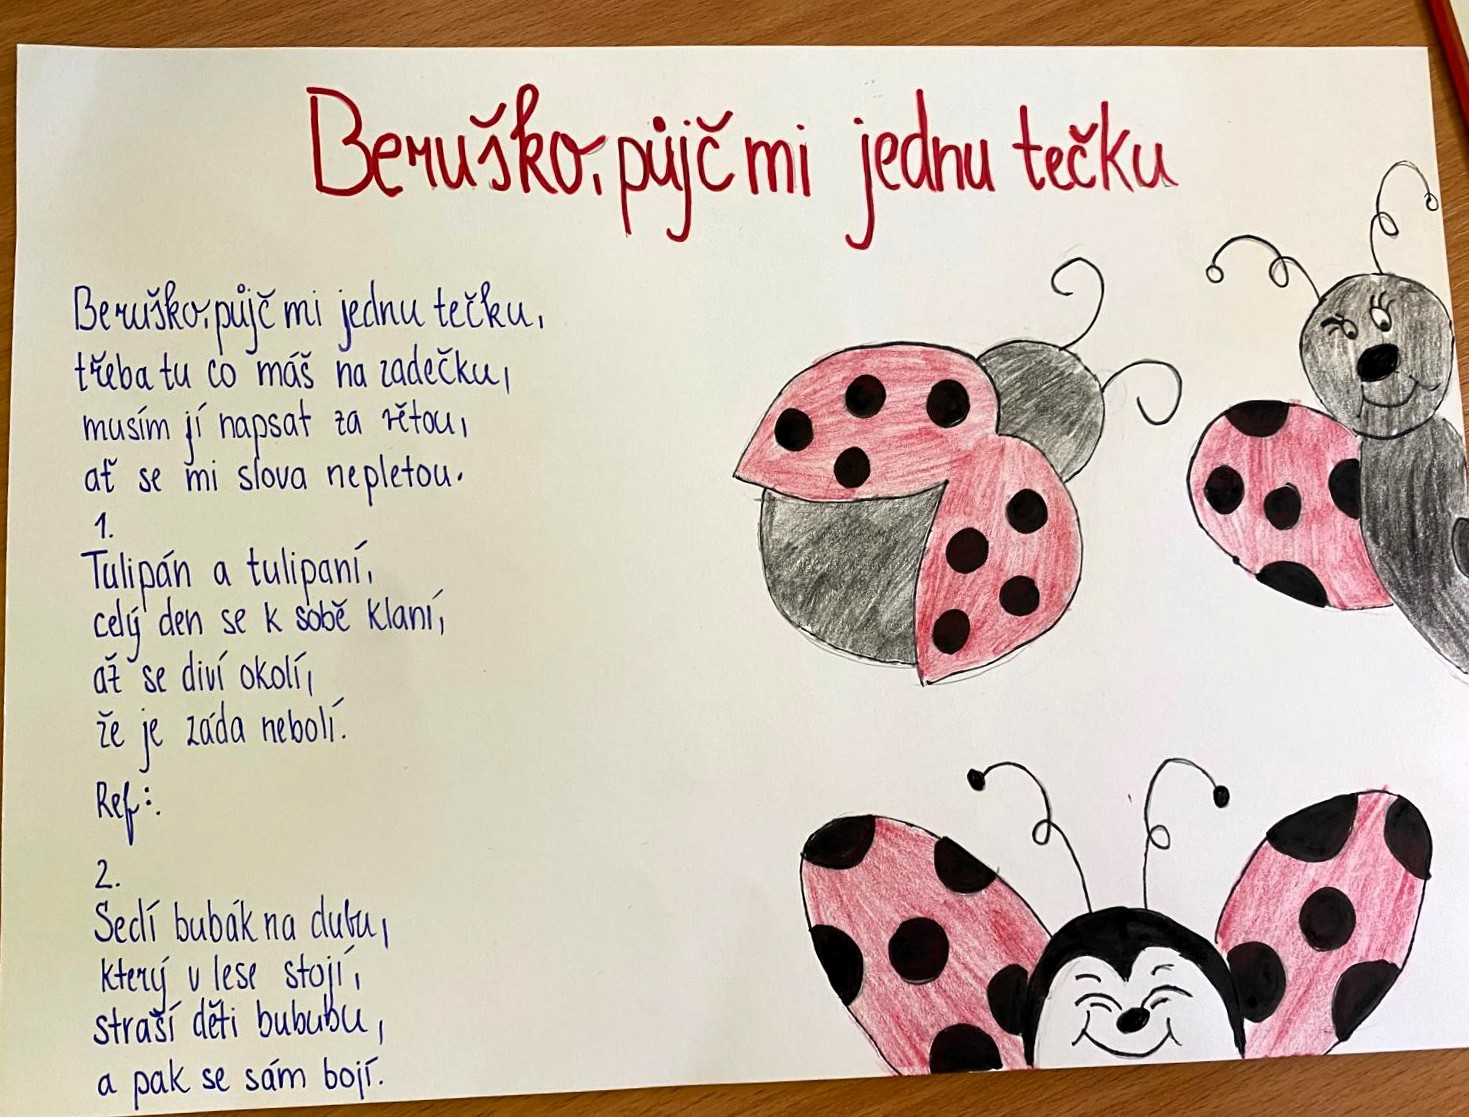 Beruško, půjč mi jednu tečku
Beruško, půjč mi jednu tečku,
třeba tu co máš na zadečku,
musím jí napsat za větou,
ať se mi slova nepletou.
1.
Tulipán a tulipaní,
celý den se k sobě klaní,
až se diví okolí,
že je záda nebolí.
Ref:.
2.
Sedí bubák na dubu,
který v lese stojí,
straší děti bububu,
a pak se sám bojí.